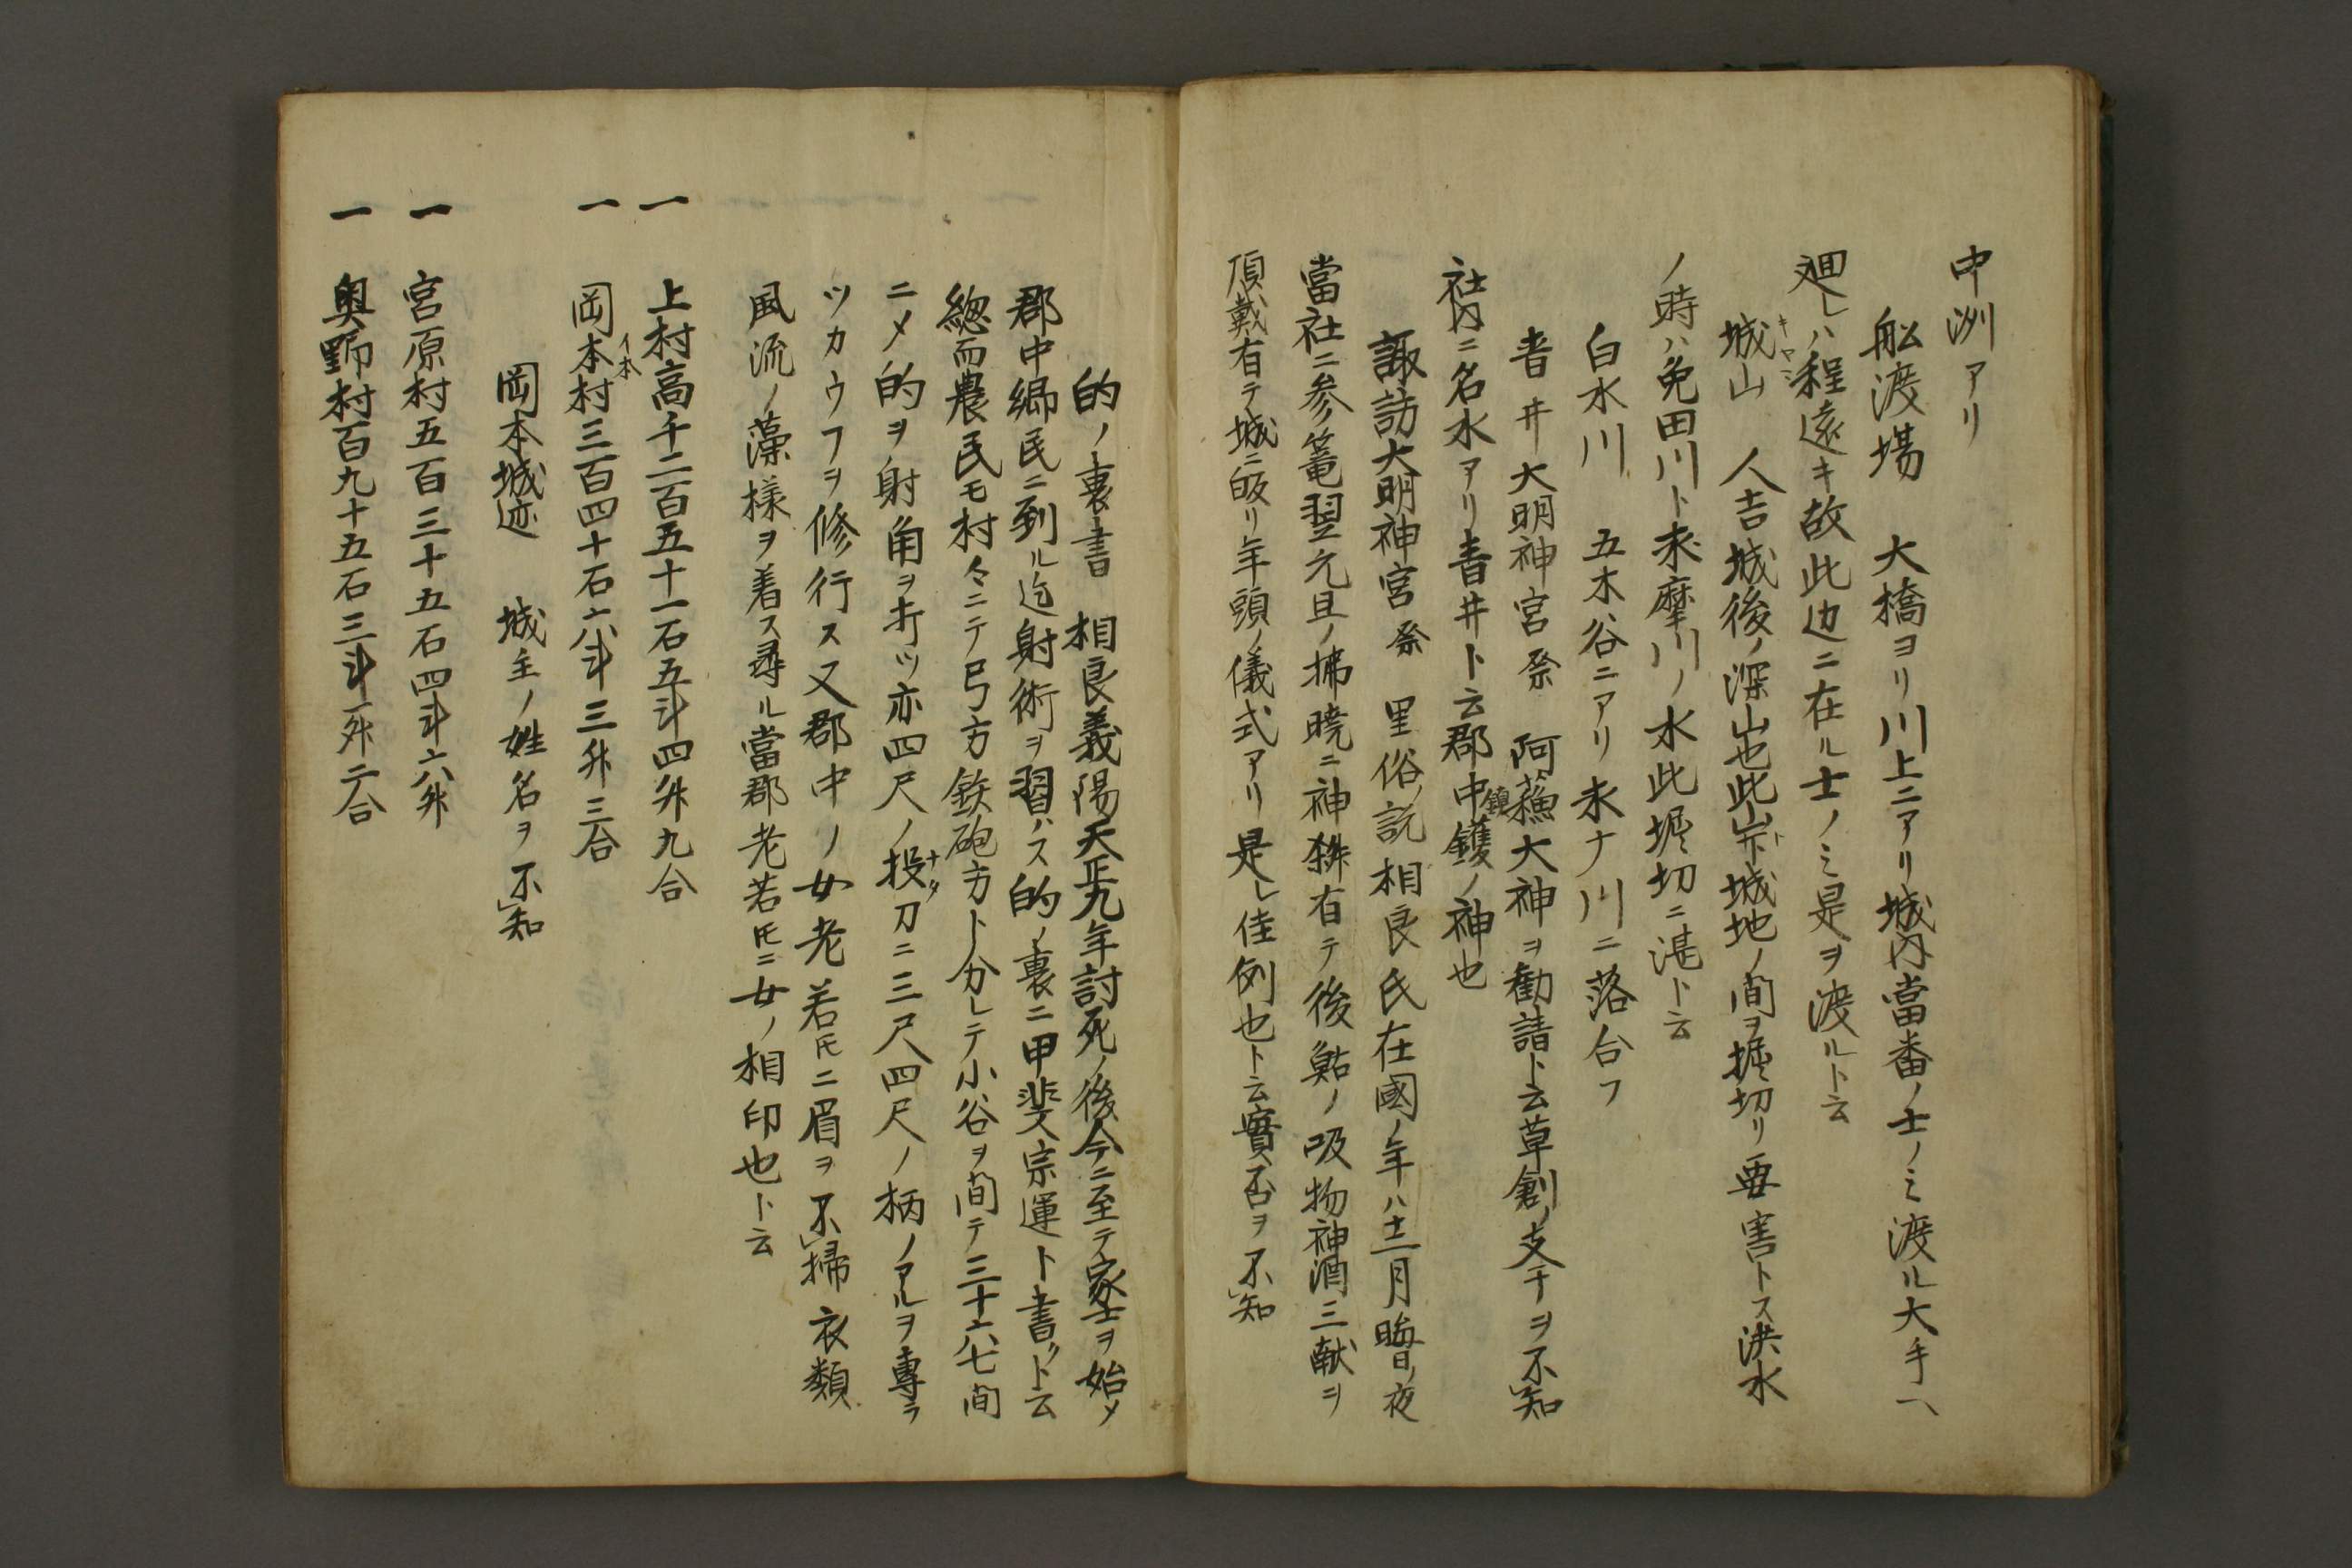 中洲アリ
舩渡場　大橋ヨリ川上ニアリ城内當番ノ士ノミ渡ル大手ヘ
廻レハ程遠キ故此辺ニ在ル士ノミ是ヲ渡ルト云
城山キヤマ　人吉城後ノ深山也此山ト城地ノ間ヲ掘切リ要害トス洪水
ノ時ハ免田川ト求摩川ノ水此堀切ニ湛ト云
白水川　五木谷ニアリ末ナ川ニ落合フ
青井大明神宮祭　阿蘓大神ヲ勸請ト云草創ノ支干ヲ不知
社内ニ名水アリ青井ト云郡中鎮ノ神也
諏訪大明神宮祭　里俗ノ説相良氏在國ノ年ハ十二月晦日ノ夜
當社ニ参篭翌元旦ノ拂暁ニ神拜有テ後鮎ノ吸物神酒三献ヲ
頂戴有テ城ニ皈リ年頭ノ儀式アリ是レ佳例也ト云實否ヲ不知
的ノ裏書　相良義陽天正九年討死ノ後今ニ至テ家士ヲ始メ
郡中郷民ニ到ル迄射術ヲ習ハス的ノ裏ニ甲斐宗運ト書クト云
總而農民モ村々ニテ弓方鉄砲方ト分レテ小谷ヲ間テ三十六七間
ニメ的ヲ射角ヲ打ツ亦四尺ノ投ナタ刀ニ三尺四尺ノ柄ノアルヲ專ラ
ツカウフヲ修行ス又郡中ノ女老若トモニ眉ヲ不掃衣類
風流ノ藻樣ヲ着ス尋ル當郡老若トモニ女ノ相印也ト云
一　上村高千二百五十一石五斗四升九合
一　岡本イ本村三百四十石六斗三升三合
岡本城迹　城主ノ姓名ヲ不知
一　宮原村五百三十五石四斗六升
一　奥野村百九十五石三斗一升二合